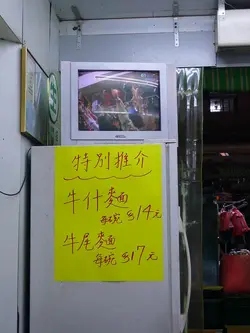 特別推介
牛什麵
每碗$14元
牛尾麵
每碗$17元